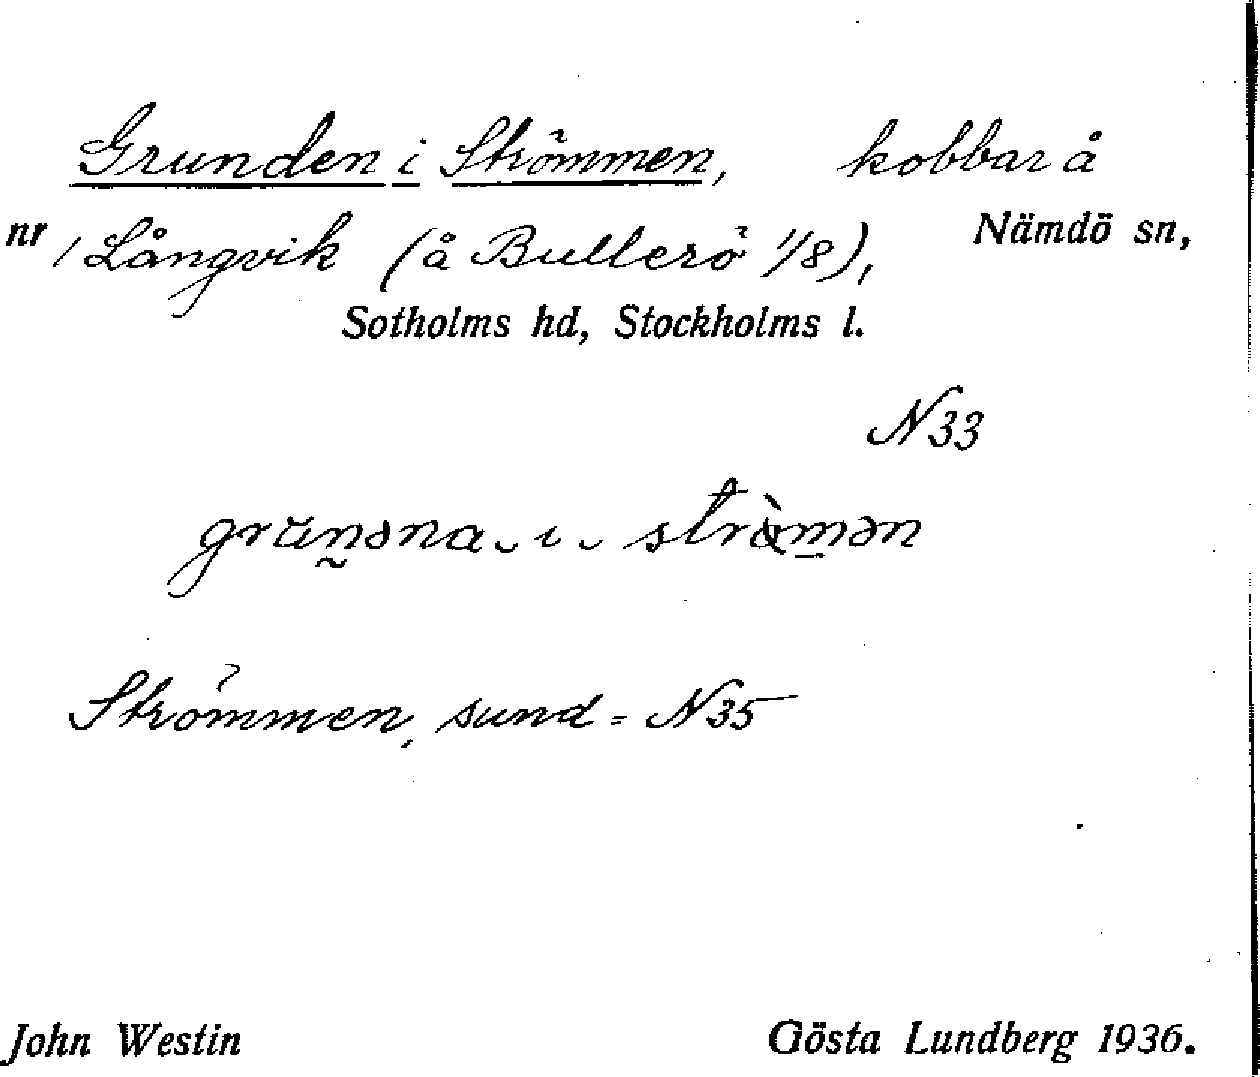 Grunden i Strömmen, kobbar å
nr / Långvik (å Bullerö 1/8), Nämdö sn,
Sotholms hd, Stockholms l.
N33
Strömmen, sund = N35
John Westin Gösta Lundberg 1936.